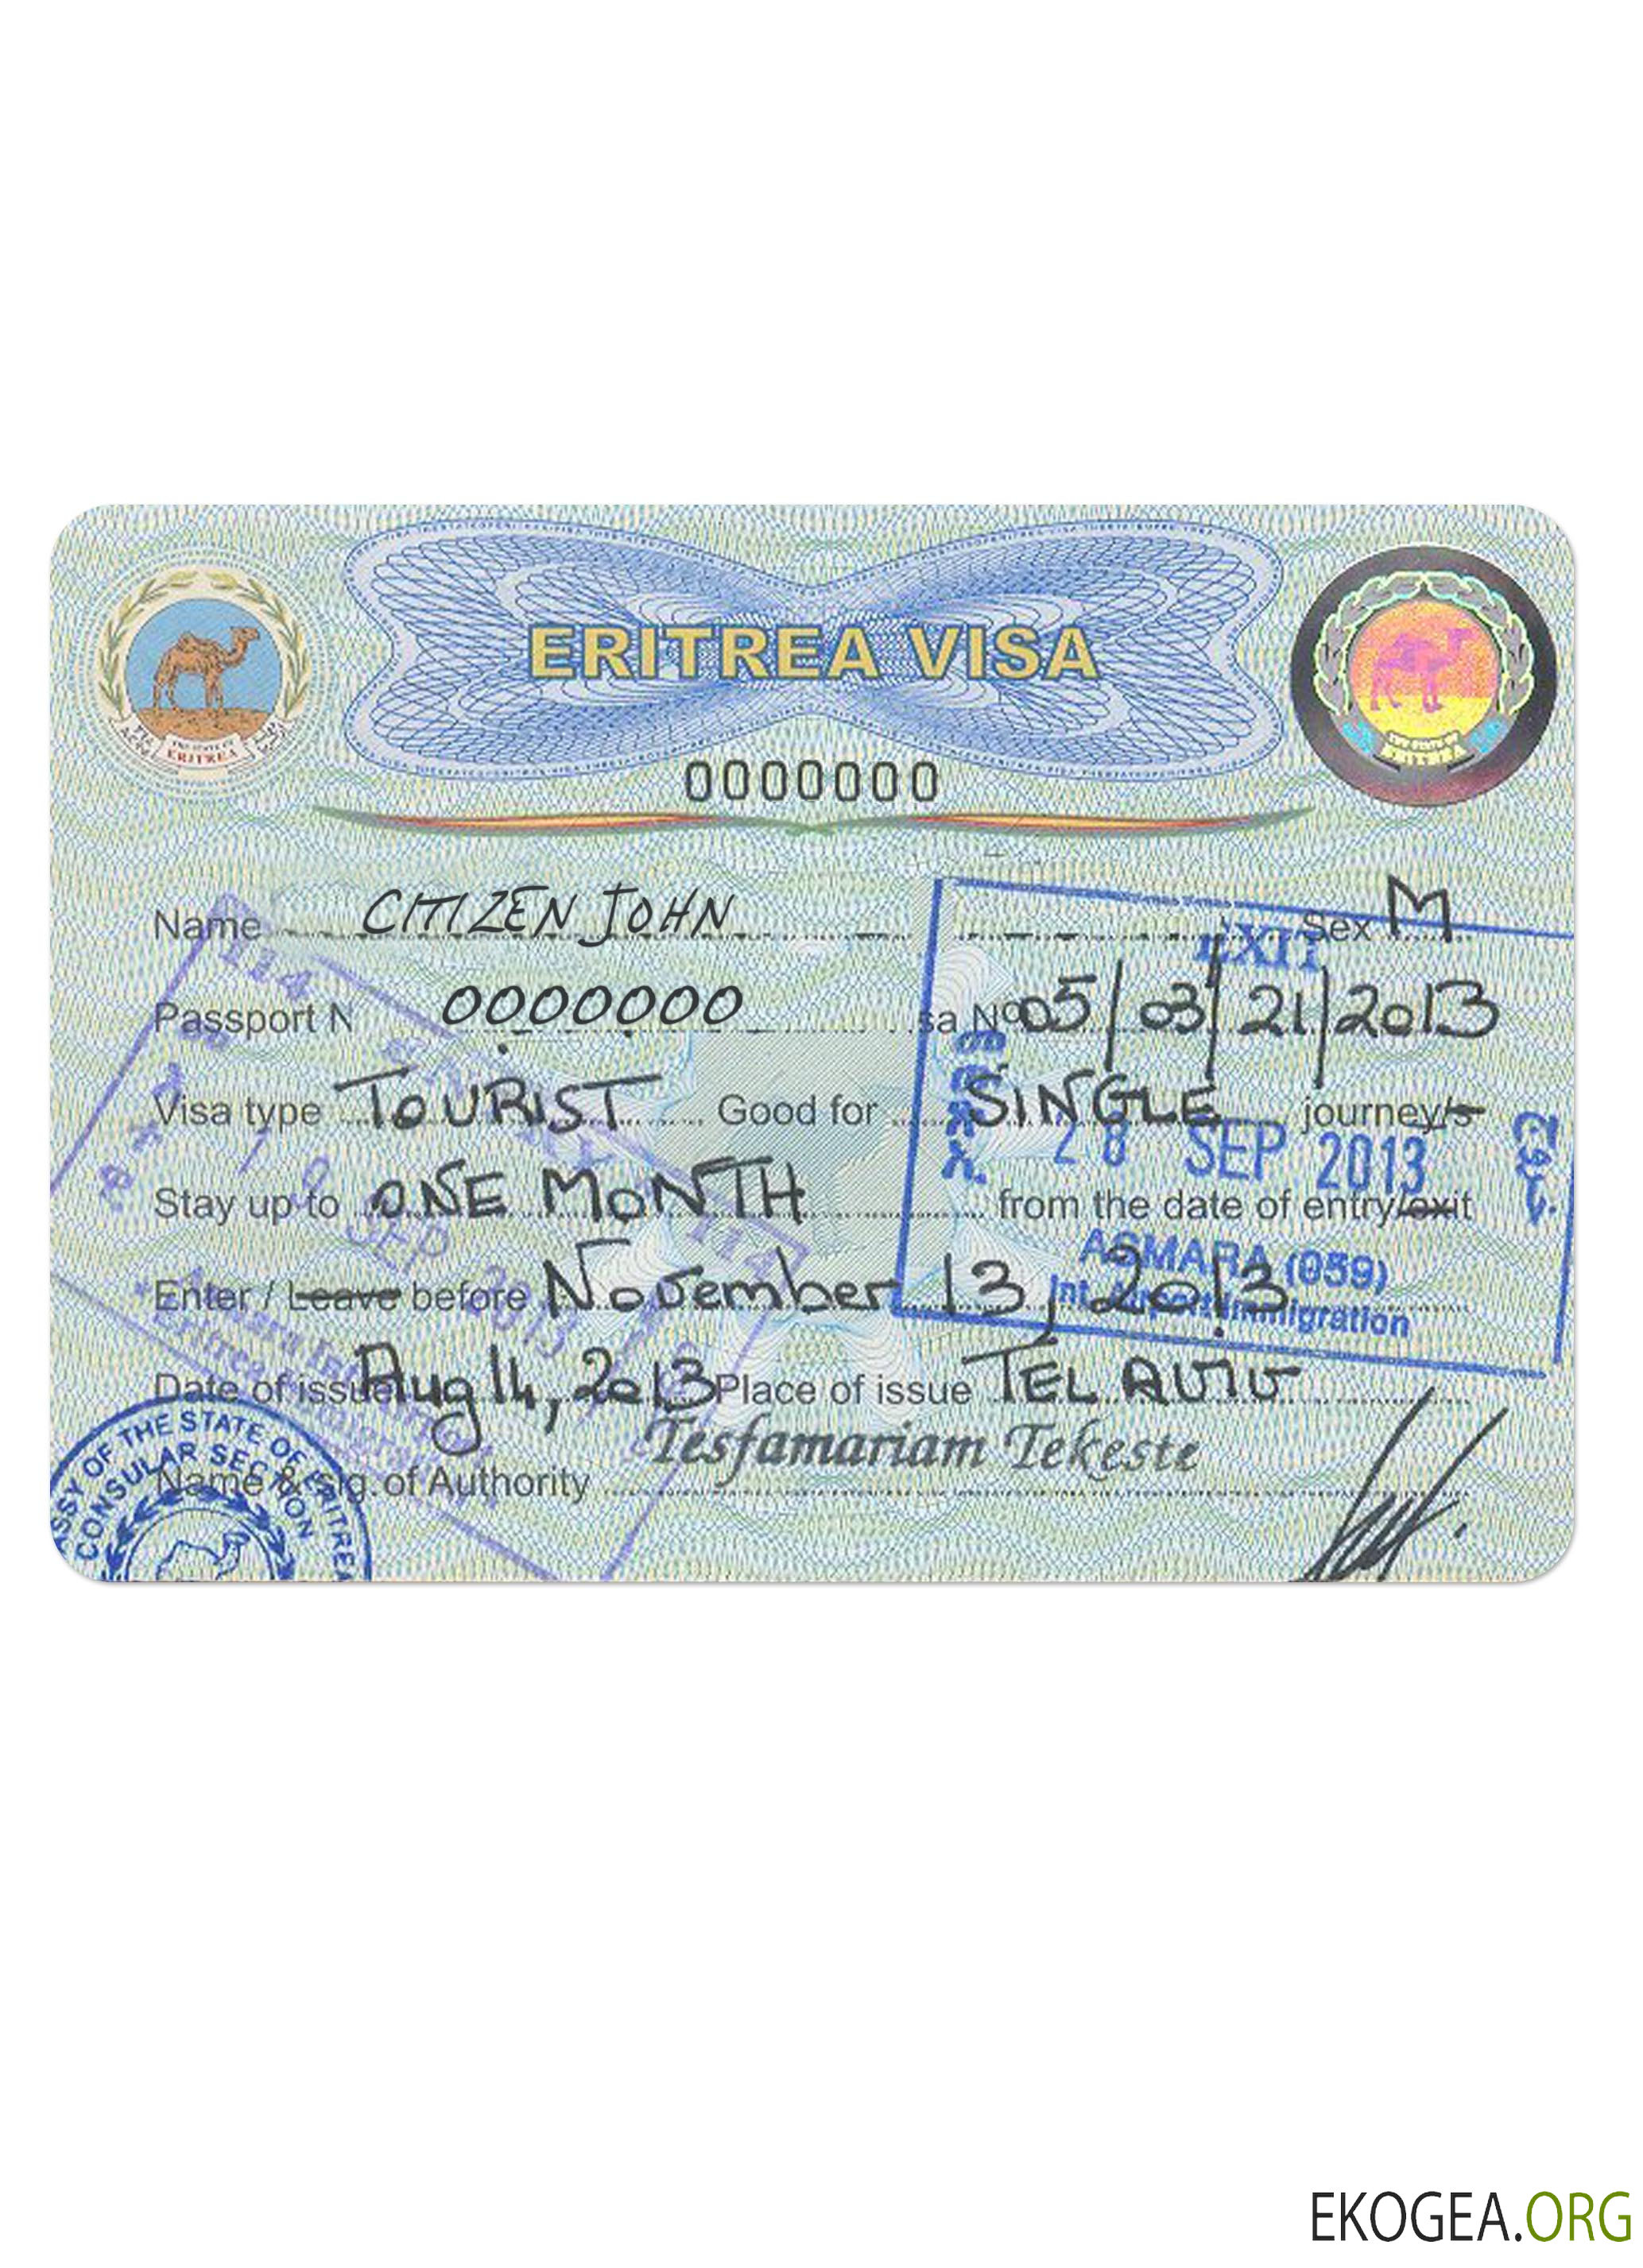 ERITREA VISA
THE STATE OF
ERITREA
THE STATE OF
ERITREA
0000000
Name CITIZEN JOHN Sex M
EXIT
114
Passport N 0000000 sa Nº 05/03/21/2013
Visa type TOURIST Good for SINGLE journey/s
28 SEP 2013
Stay up to ONE MONTH from the date of entry/exit
SEP
114
ASMARA (059)
Enter / Leave before November 13, 2013
2013
Int. Airport Immigration
Date of issue Aug 14, 2013 Place of issue TEL AVIV
Tesfamariam Tekeste
Name & sig. of Authority
ASSY OF THE STATE OF ERITREA
CONSULAR SECTION
EKOGEA.ORG